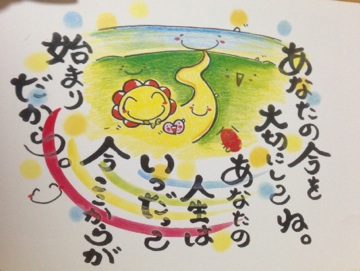 あなたの今を
大切にしてね。
あなたの
人生は
いつだって
今ここからが
始まり
だから。